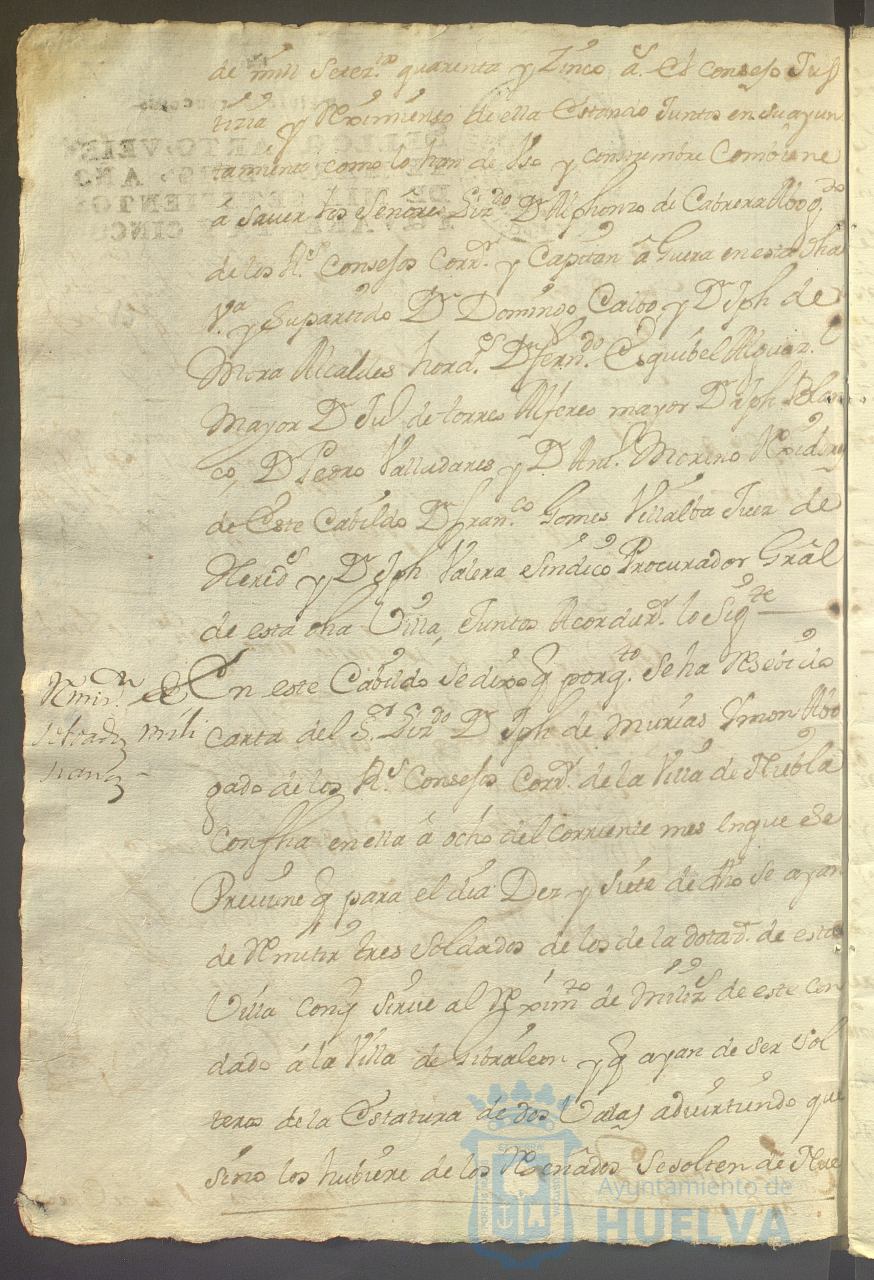 de mill setez.tos quarenta y Zinco a.s el Consejo Jus
tizia y Reximiento de ella estando Juntos en su ayun
tamiento como lo han de Vso y Constumbre Combiene
á sauer los Señores Liz.do Dn Alphonzo de Cabrera Abog.do
de los R.s Consejos Corr.r y Capitan â Guera en esta dha
V.a y su partido Dn Domingo Calbo y Dn Jph de
Mora Alcaldes hord.os Dn fern.do Esquibel Alguaz.l
Mayor Dn Ju.l de torres Alferes mayor Dn Jph Blan
co, Dn Pedro Valladares y Dn Ant.o Moreno Rexidores
de Este Cabildo Dn fran.co Gomes Villalba Juez de
Hered.s y Dn Jph Valera sindico Procurador Grâl
de esta dha Villa, Juntos Acordar.n lo Sig.te
Remis.n de
soldados mili
zianos
En este Cabildo se dixo q porq.to se ha Resevido
carta del S.or Liz.do Dn Jph de Murias Ximon Abo
gado de los R.s Consejos Corr.r de la Villa de Niebla
Con fha en ella â ocho del corriente mes en que se
Preuiene q para el dia Diez y siete de dho se ayan
de Remitir tres soldados de los de la dotaz.n de esta
Villa con q sirue al Reximto de Miliz.s de este Con
dado â la Villa de Gibraleon y q ayan de ser sol
teros de la Estatura de dos Varas aduirtiendo que
sino los hubiere de los Reseñados se solten de Nue
Ayuntamiento de
HUELVA